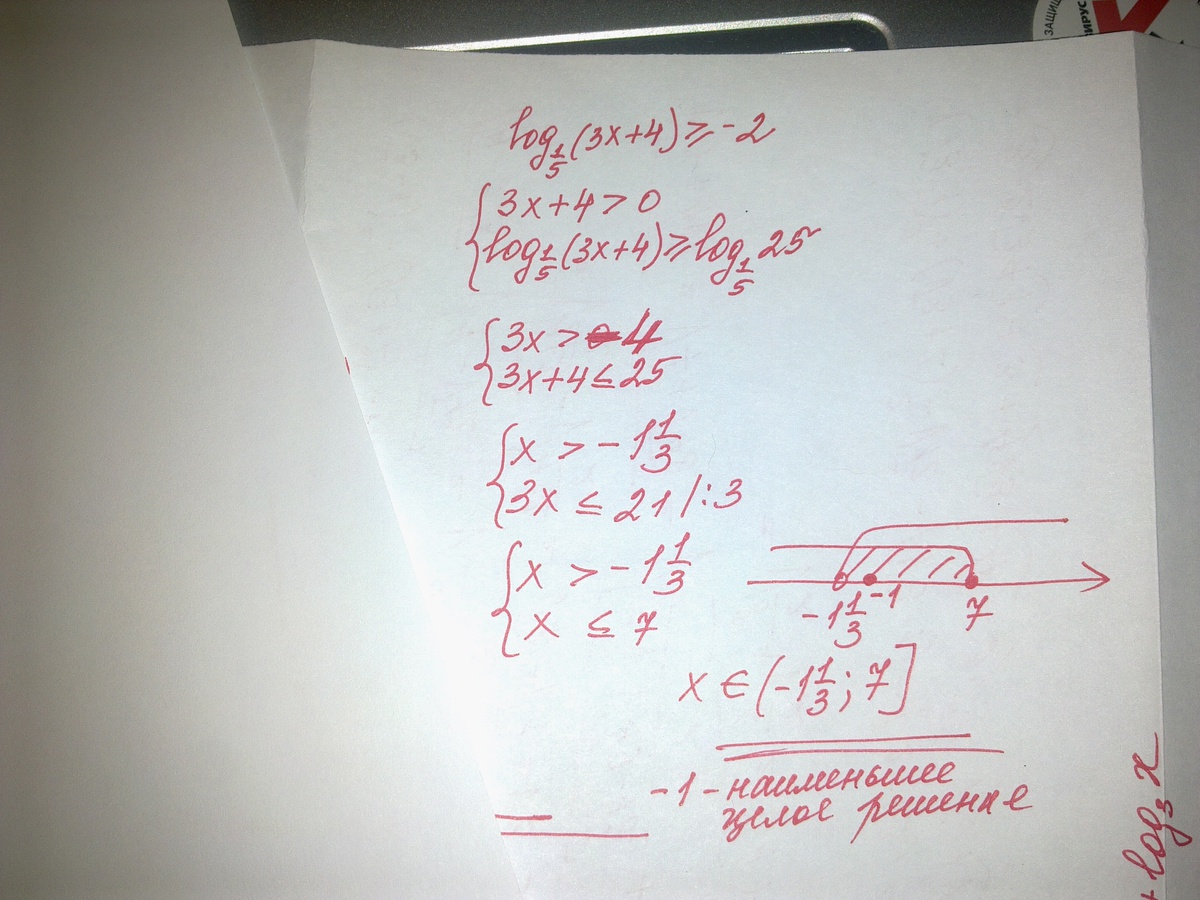 ЗАЩИ
ИРУС
log_{1/5}(3x+4) ≥ -2
{ 3x+4 > 0
log_{1/5}(3x+4) ≥ log_{1/5} 25
{ 3x > -4
3x+4 ≤ 25
{ x > -1 1/3
3x ≤ 21 /:3
{ x > -1 1/3
x ≤ 7
-1 1/3 -1 7
x ∈ (-1 1/3; 7]
-1 - наименьшее
целое решение
+ log_3 x